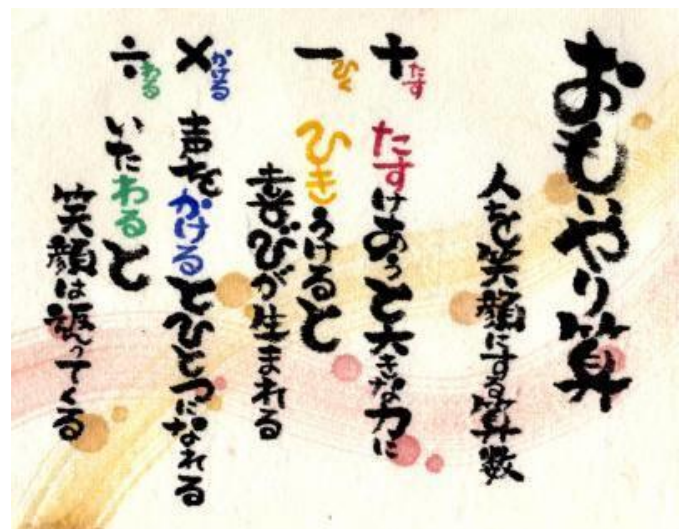 おもいやり算
人を笑顔にする算数
+たす
たすけあうと大きな力に
−ひく
ひきうけると
喜びが生まれる
×かける
声をかけるとひとつになれる
÷わる
いたわると
笑顔は返ってくる